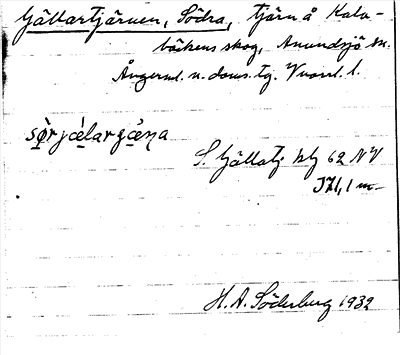 Gällartjärnen, Södra, tjärn å Kala-
bäckens skog, Anundsjö sn.
Ångerml. n. doms. tg. Vnorrl. l.
sǫ̀rjæ̀largæ̀ṇa
S. Gällatj. blz 62 NV
371,1 m-
H. A. Söderberg 1932